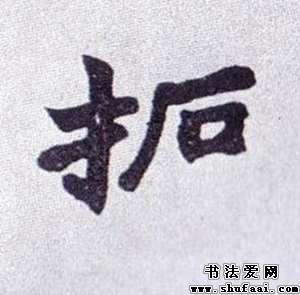 拓
书法爱网
www.shufaai.com